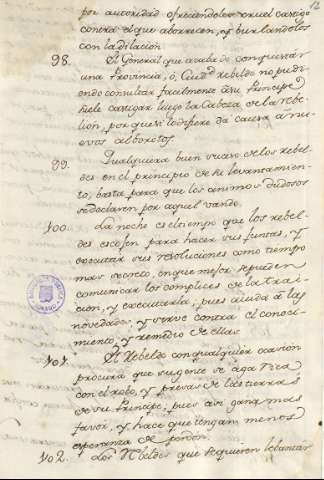 12
por autoridad ofreciendoles cruel castigo
contra el que aborrecen, y burlandolos
con la dilacion.
98. El General que acaba de conquistar
una Provincia, ó Ciud. rebelde no pudi
endo consultar facilmente á su Principe
suele castigar luego la Cabeza de la rebe
lion, porque si lo difiere da causa a nu
evos alborotos.
99. Qualquiera buen suceso de los rebel
des en el principio de su levantamien
to, basta para que los animos dudosos
se declaren por aquel vando.
100. La noche es el tiempo que los rebel
des escojen para hacer sus juntas, y
executar sus resoluciones como tiempo
mas secreto, en que mejor se pueden
comunicar los complices de la trai
cion, y executarla, pues aiuda á las
novedades, y sirve contra el conoci
miento, y remedio de ellas.
101. El Rebelde con qualquier ocasion
procura que su gente se aga rica
con el robo, y presas de las tierras
de su Principe; pues asi gana mas
favor, y hace que tengan menos
esperanza de perdon.
102. Los Rebeldes que se quieren levantar